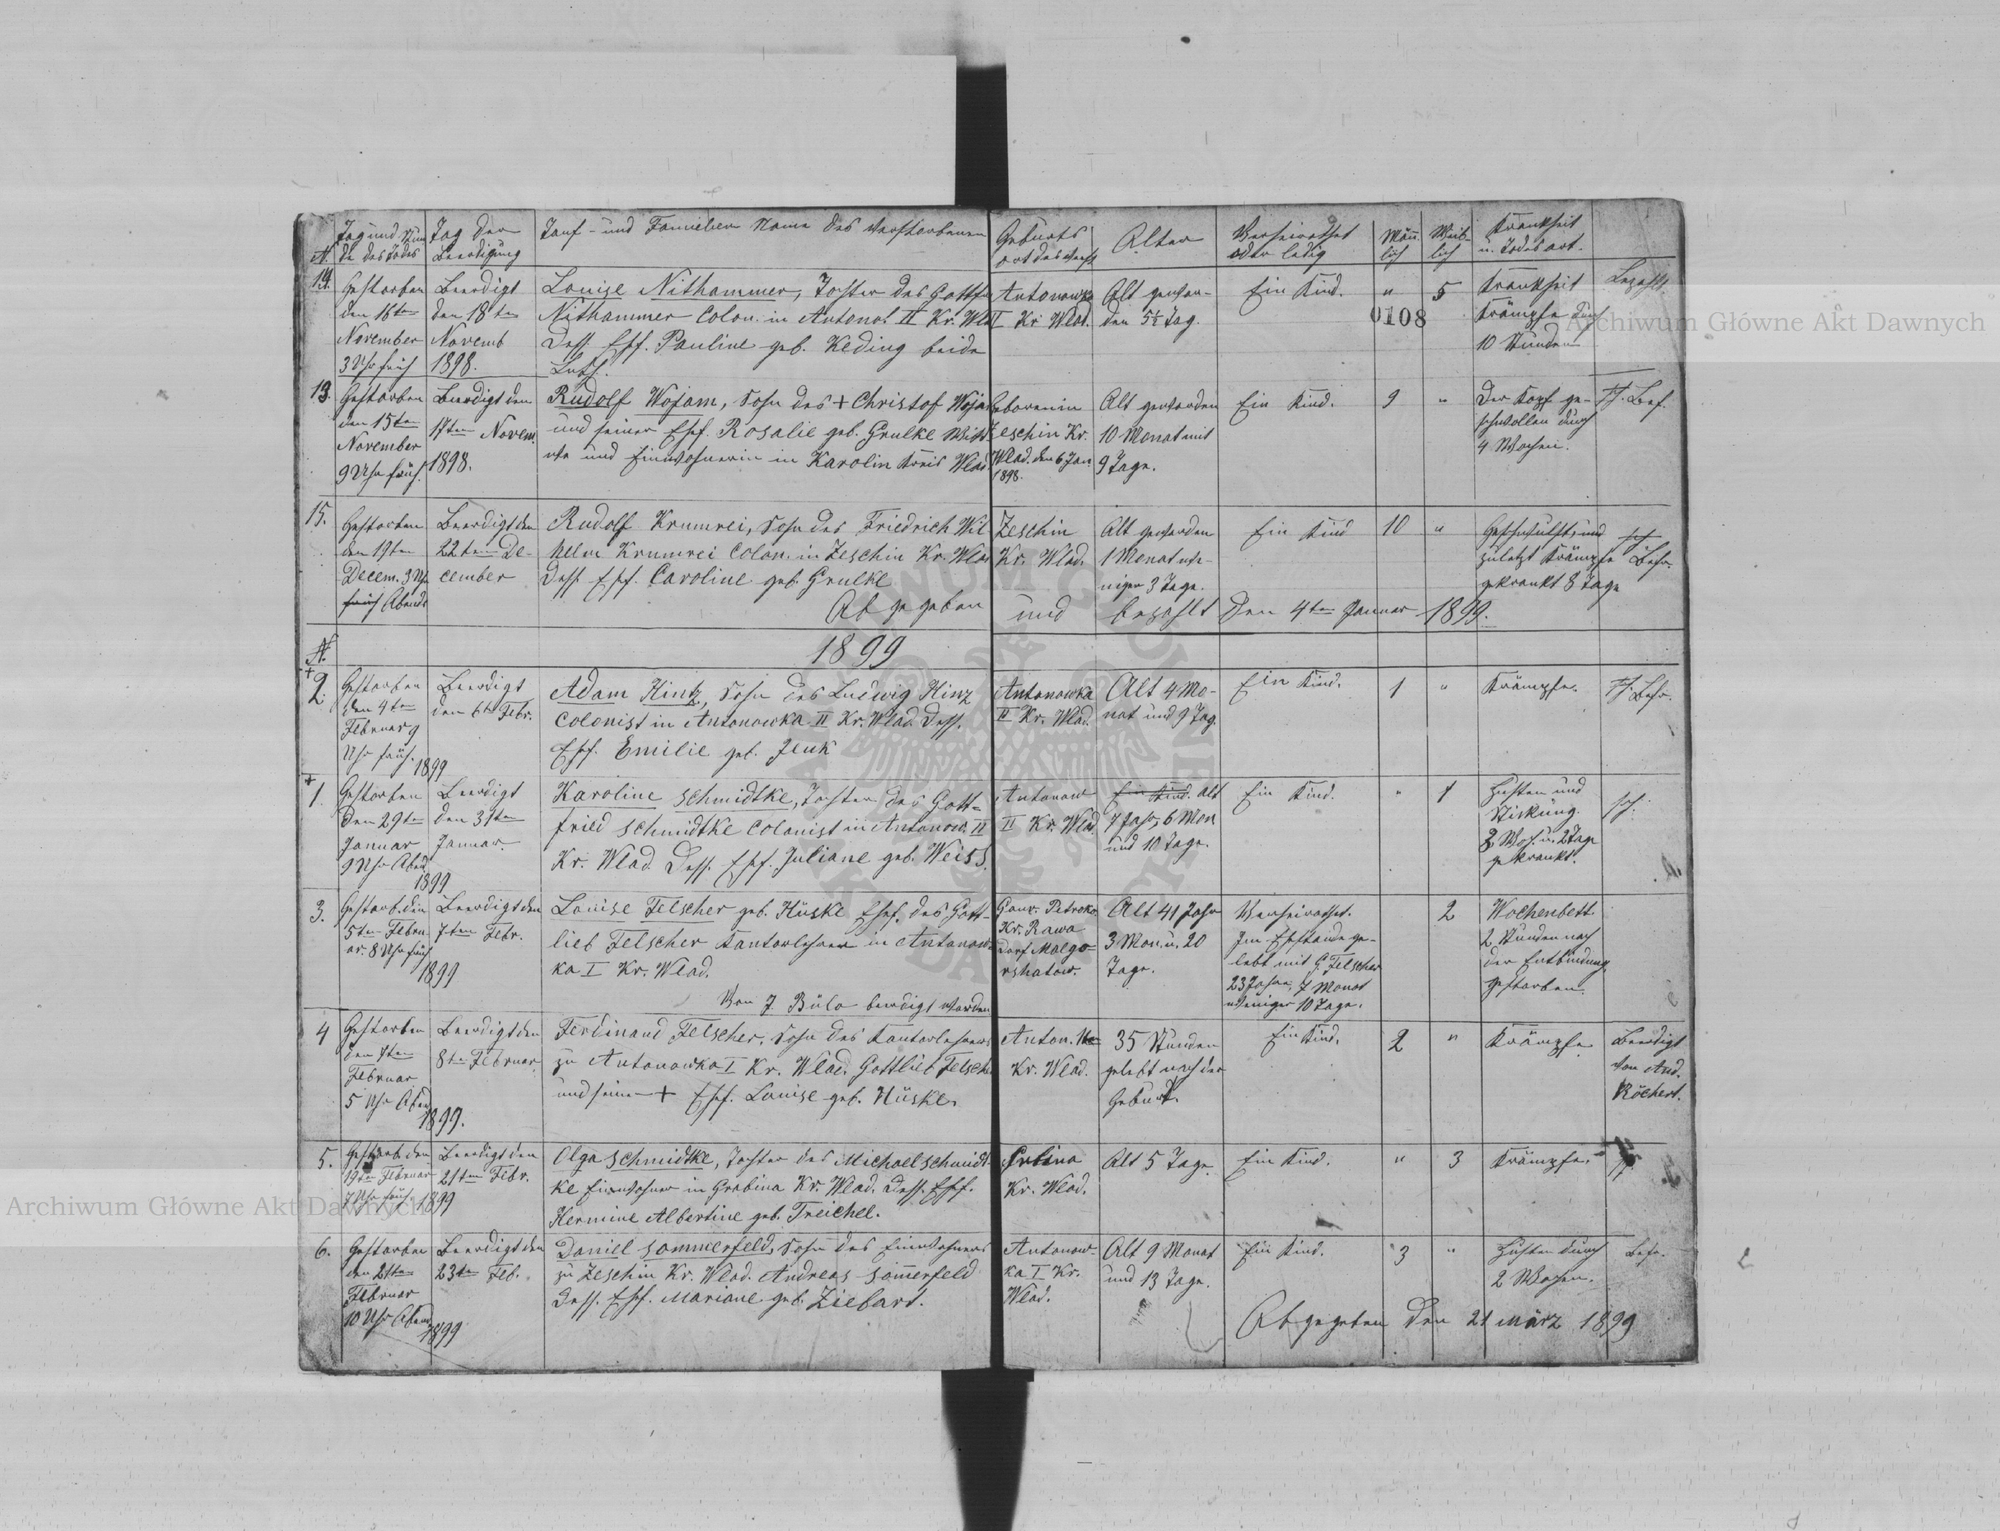 N.
Tag und Stun
de des Todes
Tag der
Beerdigung
Tauf- und Familien Name des Verstorbenen
Geburts
ort des Verst.
Alter
Verheirathet
oder ledig
Männ
lich
Weib-
lich
Krankheit
u. Todesart.
14.
Gestorben
den 16ten
November
3 Uhr früh
Beerdigt
den 18ten
Novemb
1898.
Louise Nithammer, Tochter des Gottf
Nithammer Colon. in Antonow. II Kr. Wlad
Dess. Ehf. Pauline geb. Keding beide
Luth.
Antonowka
II Kr. Wlad.
Alt gewor-
den 5½ Tag.
Ein Kind.
"
5
Krankheit
Krämpfe durch
10 Stunden
Bezahlt.
0108
13.
Gestorben
den 15ten
November
9 Uhr früh.
Beerdigt den
17ten Novem.
1898.
Rudolf Wojam, Sohn des + Christof Woja
und seiner Ehf. Rosalie geb. Grulke Witt
we und Einwohnerin in Karolin Kreis Wlad
Geboren in
Zeschin Kr.
Wlad. den 6 Jan
1898.
Alt geworden
10 Monat mit
9 Tage.
Ein Kind.
9
"
Der Kopf ge-
schwollen durch
4 Wochen.
15.
Gestorben
den 19ten
Decem. 3 Uhr
früh Abends
Beerdigt den
22ten De-
cember
Rudolf Krumrei, Sohn des Friedrich Wil
helm Krumrei Colon. in Zeschin Kr. Wlad
Dess. Ehf. Caroline geb. Grulke
Zeschin
Kr. Wlad.
Alt geworden
1 Monat we-
niger 3 Tage.
Ein Kind
10
"
Geschwulst, und
zuletzt Krämpfe
gekrankt 8 Tage
Abgegeben und bezahlt den 4ten Januar 1899.
N.
1899
+
2.
Gestorben
den 4ten
Februar 9
Uhr früh.
1899
Beerdigt
den 6ten Febr.
Adam Hintz, Sohn des Ludwig Hinz
Colonist in Antonowka II Kr. Wlad. Dess.
Ehf. Emilie geb. Jenk
Antonowka
II Kr. Wlad.
Alt 4 Mo-
nat und 9 Tag.
Ein Kind.
1
"
Krämpfe.
+
1.
Gestorben
den 29ten
Januar
9 Uhr Abend
1899
Beerdigt
den 31ten
Januar.
Karoline Schmidtke, Tochter des Gott-
fried Schmidtke Colonist in Antonow. II
Kr. Wlad. Dess. Ehf. Juliane geb. Weiss.
Antonow
II Kr. Wlad
Ein Kind. Alt
7 Jahr, 6 Mon
und 10 Tage.
Ein Kind.
"
1
Husten und
Stickung.
2 Woch. u. 2 Tage
gekrankt.
3.
Gestorb. den
5ten Febru-
ar. 8 Uhr früh
1899
Beerdigt den
7ten Febr.
Louise Felscher geb. Hüske Ehf. des Gott-
lieb Felscher Kantorlehrer in Antonow-
ka I Kr. Wlad.
Von J. Bülo beerdigt worden
Gouv. Petroko
Kr. Rawa
Dorf Malgo-
rshatow.
Alt 41 Jahr
3 Mon. u. 20
Tage.
Verheirathet.
Im Ehstande ge-
lebt mit G. Felscher
23 Jahre, 7 Monat
weniger 10 Tage.
2
Wochenbett
2 Stunden nach
der Entbindung
gestorben.
4
Gestorben
den 7ten
Februar
5 Uhr Abend
1899.
Beerdigt den
8ten Februar.
Ferdinand Felscher, Sohn des Kantorlehrers
zu Antonowka I Kr. Wlad. Gottlieb Felsch
und seiner + Ehf. Louise geb. Hüske.
Anton.
Kr. Wlad.
35 Stunden
gelebt nach der
Geburt.
Ein Kind.
2
"
Krämpfe
Beerdigt
von And.
Röchert.
5.
Gestorb. den
19ten Februar
7 Uhr früh
1899
Beerdigt den
21ten Febr.
Olga Schmidtke, Tochter des Michael Schmidt
ke Einwohner in Grabina Kr. Wlad. Dess. Ehf.
Hermine Albertine geb. Treichel.
Grbina
Kr. Wlad.
Alt 5 Tage
Ein Kind.
"
3
Krämpfe.
6.
Gestorben
den 21ten
Februar
10 Uhr Abend
1899
Beerdigt den
23ten Feb.
Daniel Sommerfeld, Sohn des Einwohners
zu Zeschin Kr. Wlad. Andreas Som̄erfeld
Dess. Ehf. Mariane geb. Ziebart.
Antonow-
ka I Kr.
Wlad.
Alt 9 Monat
und 13 Tage.
Ein Kind.
3
"
Husten durch
2 Wochen.
Abgegeben den 21 März 1899
Archiwum Główne Akt Dawnych
Archiwum Główne Akt Dawnych